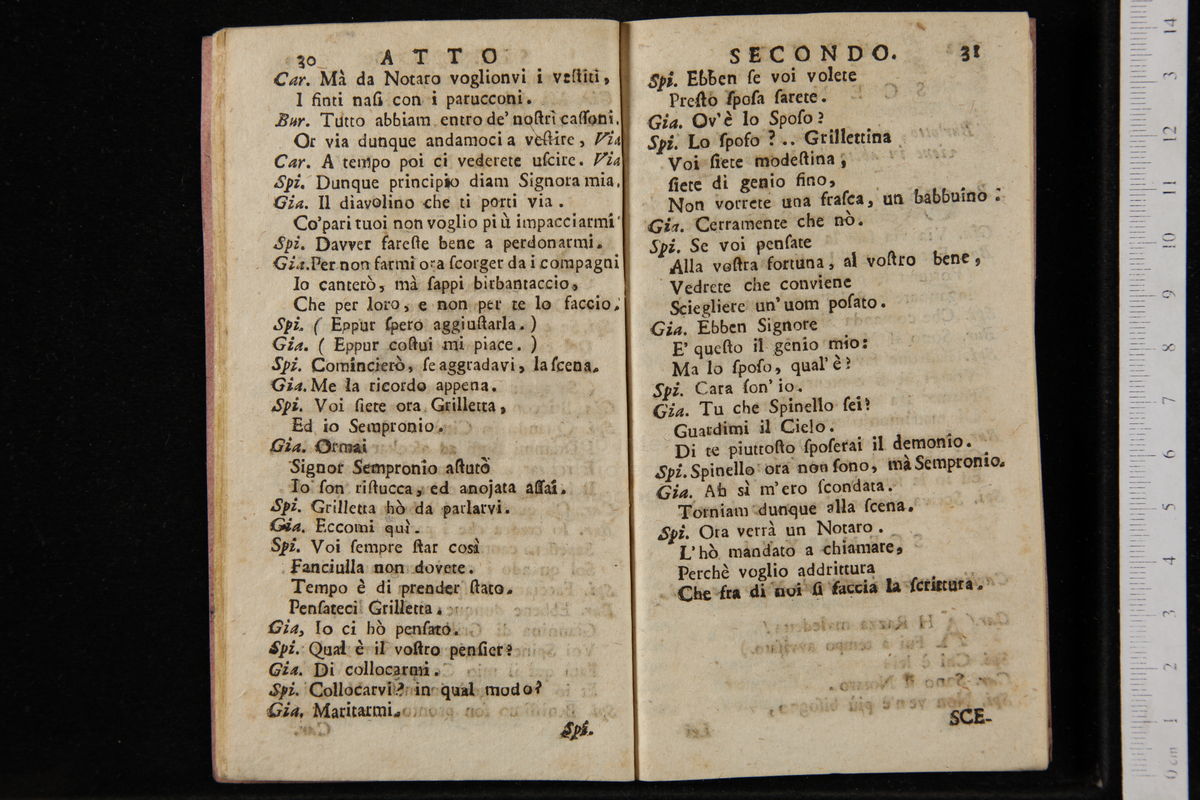 30 ATTO
Car. Mà da Notaro voglionvi i vestiti,
I finti nasi con i parucconi.
Bur. Tutto abbiam entro de' nostri cassoni.
Or via dunque andamoci a vestire, Via
Car. A tempo poi ci vederete uscire. Via
Spi. Dunque principio diam Signora mia.
Gia. Il diavolino che ti porti via.
Co' pari tuoi non voglio più impacciarmi
Spi. Davver fareste bene a perdonarmi.
Gia. Per non farmi ora scorger da i compagni
Io canterò, mà sappi birbantaccio,
Che per loro, e non per te lo faccio.
Spi. ( Eppur spero aggiustarla. )
Gia. ( Eppur costui mi piace. )
Spi. Comincierò, se aggradavi, la scena.
Gia. Me la ricordo appena.
Spi. Voi siete ora Grilletta,
Ed io Sempronio.
Gia. Ormai
Signor Sempronio astutò
Io son ristucca, ed anojata assai.
Spi. Grilletta hò da parlarvi.
Gia. Eccomi quì.
Spi. Voi sempre star così
Fanciulla non dovete.
Tempo è di prender stato.
Pensateci Grilletta.
Gia, Io ci hò pensato.
Spi. Qual è il vostro pensier?
Gia. Di collocarmi.
Spi. Collocarvi? in qual modo?
Gia. Maritarmi.
Spi.
SECONDO. 31
Spi. Ebben se voi volete
Presto sposa sarete.
Gia. Ov'è lo Sposo?
Spi. Lo sposo ? .. Grillettina
Voi siete modestina,
siete di genio fino,
Non vorrete una frasca, un babbuino.
Gia. Cerramente che nò.
Spi. Se voi pensate
Alla vostra fortuna, al vostro bene,
Vedrete che conviene
Sciegliere un' uom posato.
Gia. Ebben Signore
E' questo il genio mio:
Ma lo sposo, qual' è?
Spi. Cara son' io.
Gia. Tu che Spinello sei?
Guardimi il Cielo.
Di te piuttosto sposerai il demonio.
Spi. Spinello ora non sono, mà Sempronio.
Gia. Ah sì m'ero scondata.
Torniam dunque alla scena.
Spi. Ora verrà un Notaro.
L'hò mandato a chiamare,
Perchè voglio addrittura
Che fra di noi si faccia la scrittura.
SCE-